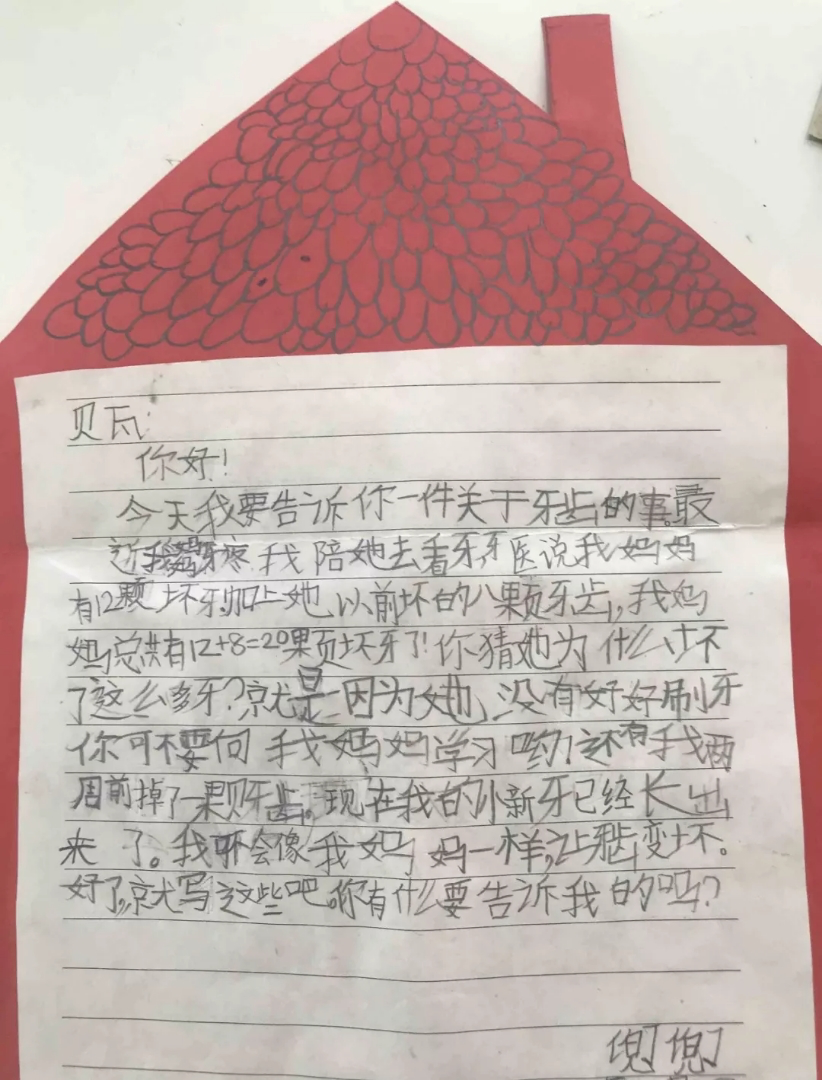 贝瓦:
你好!
今天我要告诉你一件关于牙齿的事。最
近我妈妈牙疼,我陪她去看牙,牙医说我妈妈
有12颗坏牙,加上她以前坏的八颗牙齿,我妈
妈总共有12+8=20颗坏牙了!你猜她为什么坏
了这么多牙?就是因为她没有好好刷牙
你可不要向我妈妈学习哟!还有我两
周前掉了一颗牙齿。现在我的小新牙已经长出
来了。我不会像我妈妈一样,让牙齿变坏。
好了,就写这些吧。你有什么要告诉我的吗?
兜兜